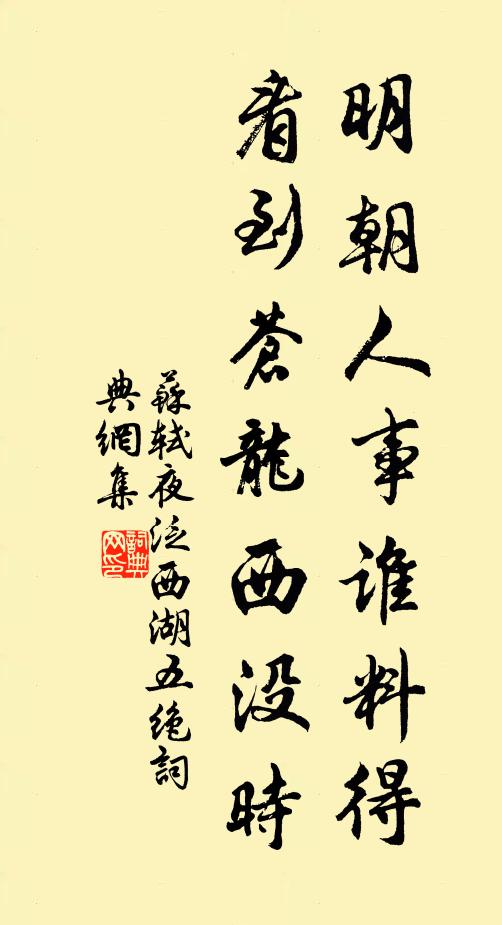 明朝人事谁料得
看到蒼龍西没時
蘇軾夜泛西湖五绝詞
典網集
詞典
网印